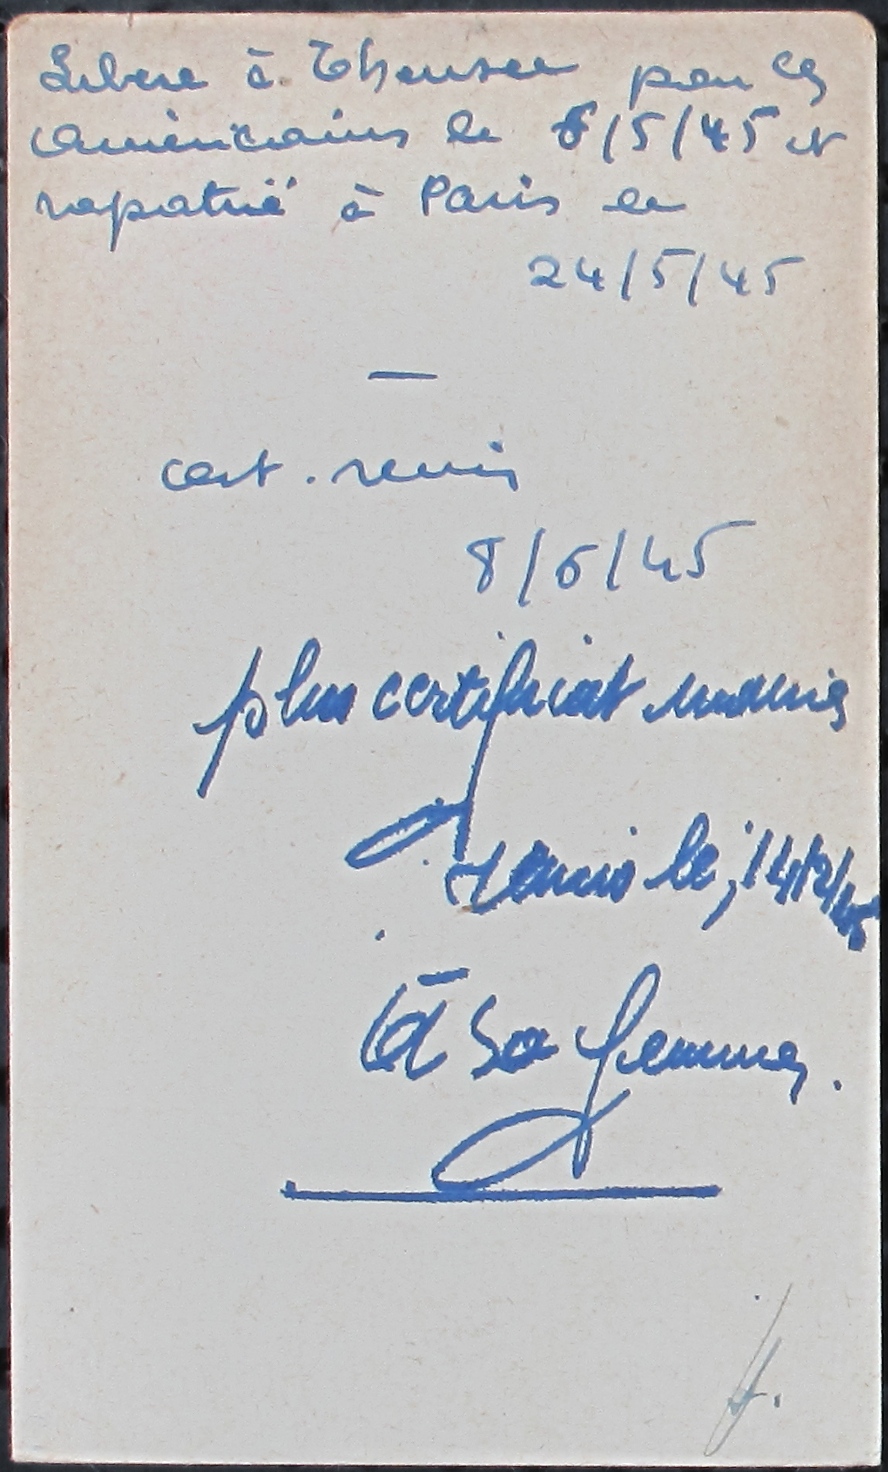 Libéré à Ebensee par les
américains le 6/5/45 et
rapatrié à Paris le
24/5/45
—
cert. remis
8/6/45
plus certificat
remis le, 14/12/45
à sa femme.